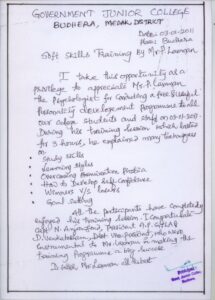 GOVERNMENT JUNIOR COLLEGE
BUDHERA, MEDAK DISTRICT
Date: 03-01-2011
Place: Budhera
Soft Skills Training by Mr. P. Laxman
I take this opportunity as a
privilege to appreciate Mr. P. Laxman
the Psychologist for conducting a free &
Personality development programme to all
our college students and staff on 03-01-2011
During his training session which lasted
for 3 hours, he explained many techniques
on
• Study skills
• Learning styles
• Overcoming Examination Phobia
• How to Develop self confidence
• Winners v/s losers
• Goal setting
All the participants have completely
enjoyed his training session. I congratulate
Capt N.
D. Venkatesham, who were
instrumental to Mr. Laxman in making the
Training Programme a big success
I wish Mr. Laxman all the best
Principal
Govt. Junior College